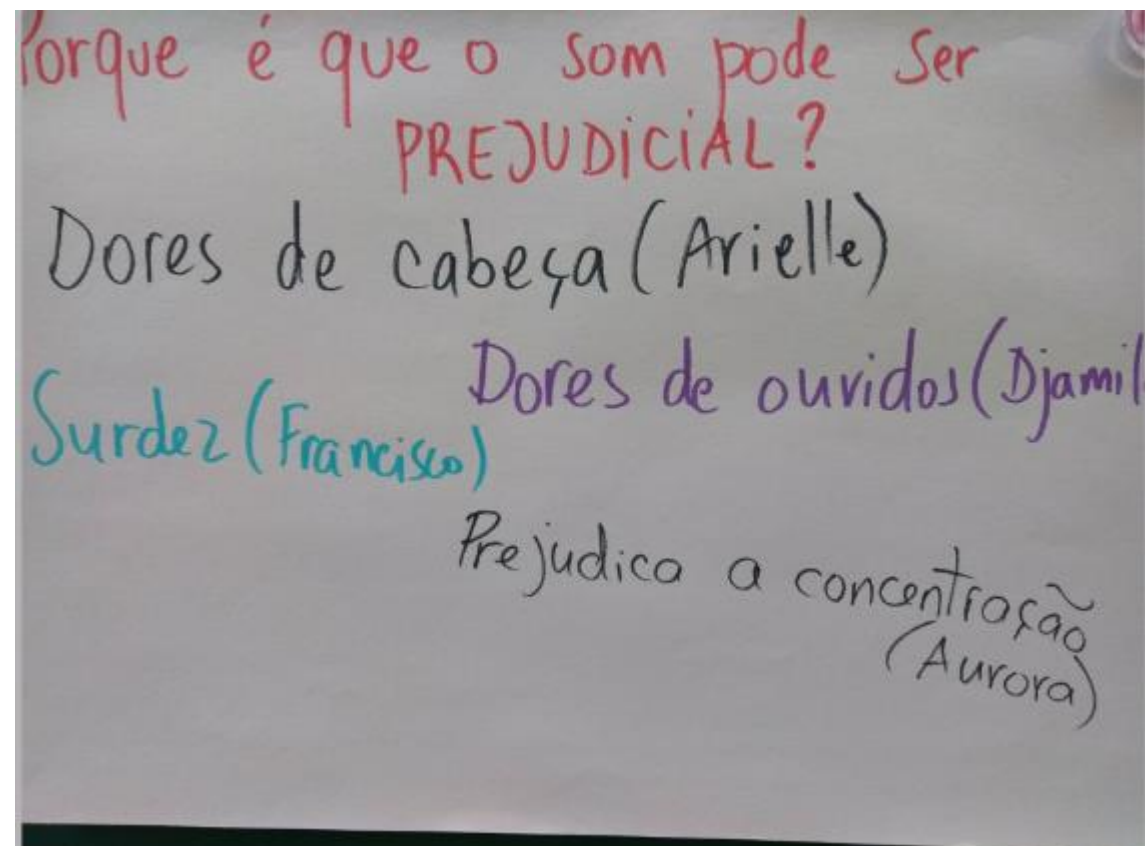 Porque é que o som pode ser
PREJUDICIAL?
Dores de cabeça (Arielle)
Dores de ouvidos (Djamil
Surdez (Francisco)
Prejudica a concentração
(Aurora)